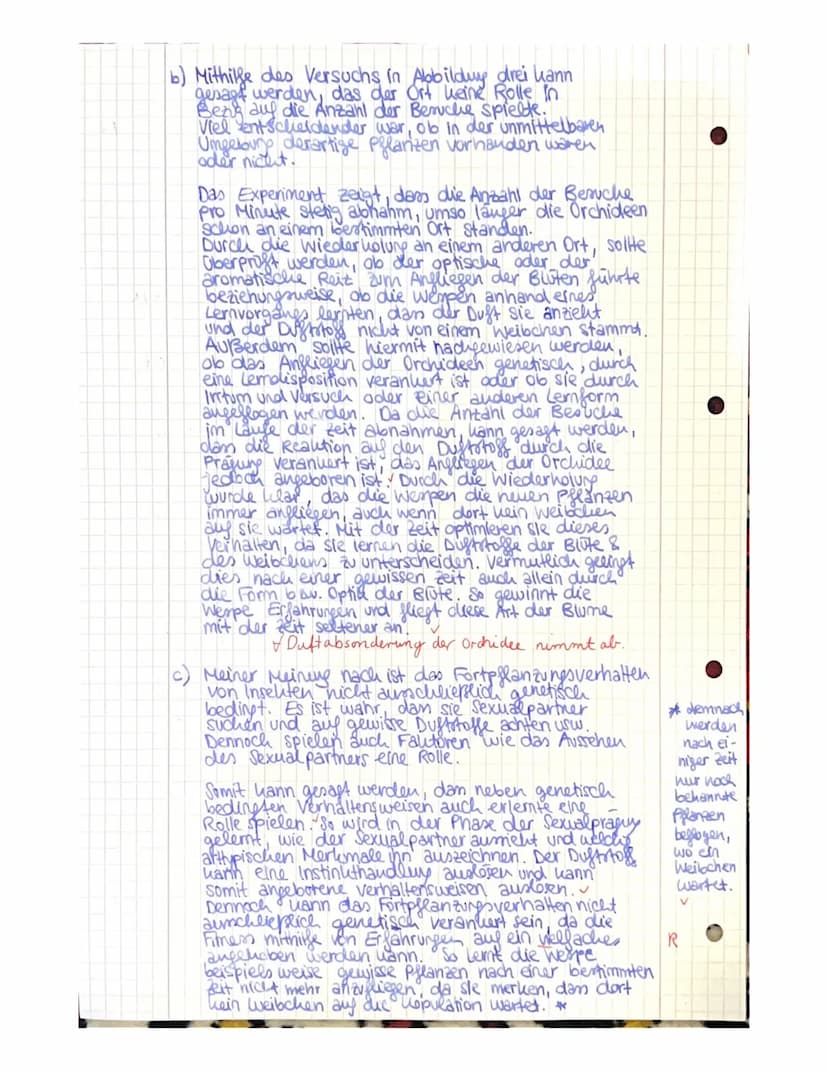 b) Mithilfe des Versuchs in Abbildung drei kann
gesagt werden, das der Ort keine Rolle in
Bezug auf die Anzahl der Besuche spielte.
Viel entscheidender war, ob in der unmittelbaren
Umgebung derartige Pflanzen vorhanden waren
oder nicht.
Das Experiment zeigt, dass die Anzahl der Besuche
pro Minute stetig abnahm, umso länger die Orchideen
schon an einem bestimmten Ort standen.
Durch die Wiederholung an einem anderen Ort, sollte
überprüft werden, ob der optische oder der
aromatische Reiz zum Anfliegen der Blüten führte
beziehungsweise, ob die Wespen anhand eines
Lernvorgangs lernten, dass der Duft sie anzieht
und der Duftstoff nicht von einem Weibchen stammt.
Außerdem sollte hiermit nachgewiesen werden,
ob das Anfliegen der Orchideen genetisch, durch
eine Lerndisposition verankert ist oder ob sie durch
Irrtum und Versuch oder einer anderen Lernform
angeflogen werden. Da die Anzahl der Besuche
im Laufe der Zeit abnahmen, kann gesagt werden,
dass die Reaktion auf den Duftstoff durch die
Prägung verankert ist, das Anfliegen der Orchidee
jedoch angeboren ist. ✓ Durch die Wiederholung
wurde klar, das die Wespen die neuen Pflanzen
immer anfliegen, auch wenn dort kein Weibchen
auf sie wartet. Mit der Zeit optimieren sie dieses
Verhalten, da sie lernen die Duftstoffe der Blüte &
des Weibchens zu unterscheiden. Vermutlich gelingt
dies nach einer gewissen Zeit auch allein durch
die Form bzw. Optik der Blüte. So gewinnt die
Wespe Erfahrungen und fliegt diese Art der Blume
mit der Zeit seltener an. ✓
√ Duftabsonderung der Orchidee nimmt ab.
c) Meiner Meinung nach ist das Fortpflanzungsverhalten
von Insekten nicht ausschließlich genetisch
bedingt. Es ist wahr, dass sie Sexualpartner
suchen und auf gewisse Duftstoffe achten usw.
Dennoch spielen auch Faktoren wie das Aussehen
des Sexualpartners eine Rolle.
Somit kann gesagt werden, dass neben genetisch
bedingten Verhaltensweisen auch erlernte eine
Rolle spielen. ✓ So wird in der Phase der Sexualprägung
gelernt, wie der Sexualpartner aussieht und welche
arttypischen Merkmale ihn auszeichnen. Der Duftstoff
kann eine Instinkthandlung auslösen und kann
somit angebotene Verhaltensweisen auslösen. ✓
Dennoch kann das Fortpflanzungsverhalten nicht
ausschließlich genetisch verankert sein, da die
Fitness mithilfe von Erfahrungen auf ein vielfaches
angehoben werden kann. So lernt die Wespe
beispielsweise gewisse Pflanzen nach einer bestimmten
Zeit nicht mehr anzufliegen, da sie merken, dass dort
kein Weibchen auf die Kopulation wartet. *
* demnach
werden
nach ei-
niger Zeit
nur noch
bekannte
Pflanzen
beflogen,
wo ein
Weibchen
wartet.
✓
R